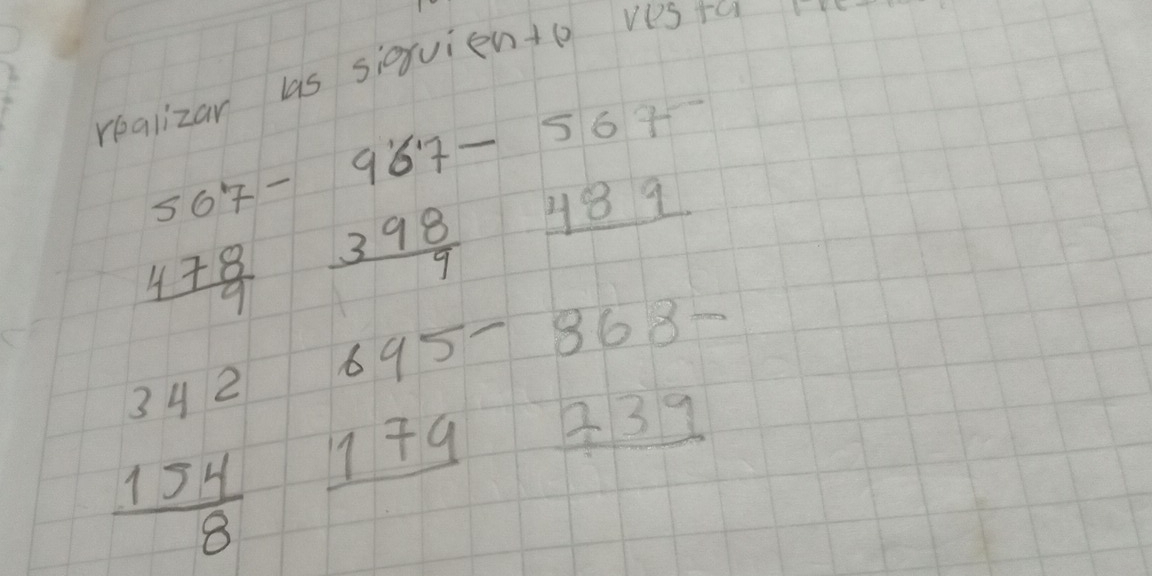 realizar las siguiente resta
567- 967- 567-
478 398 489
9 9
342 695- 868-
154 179 239
8